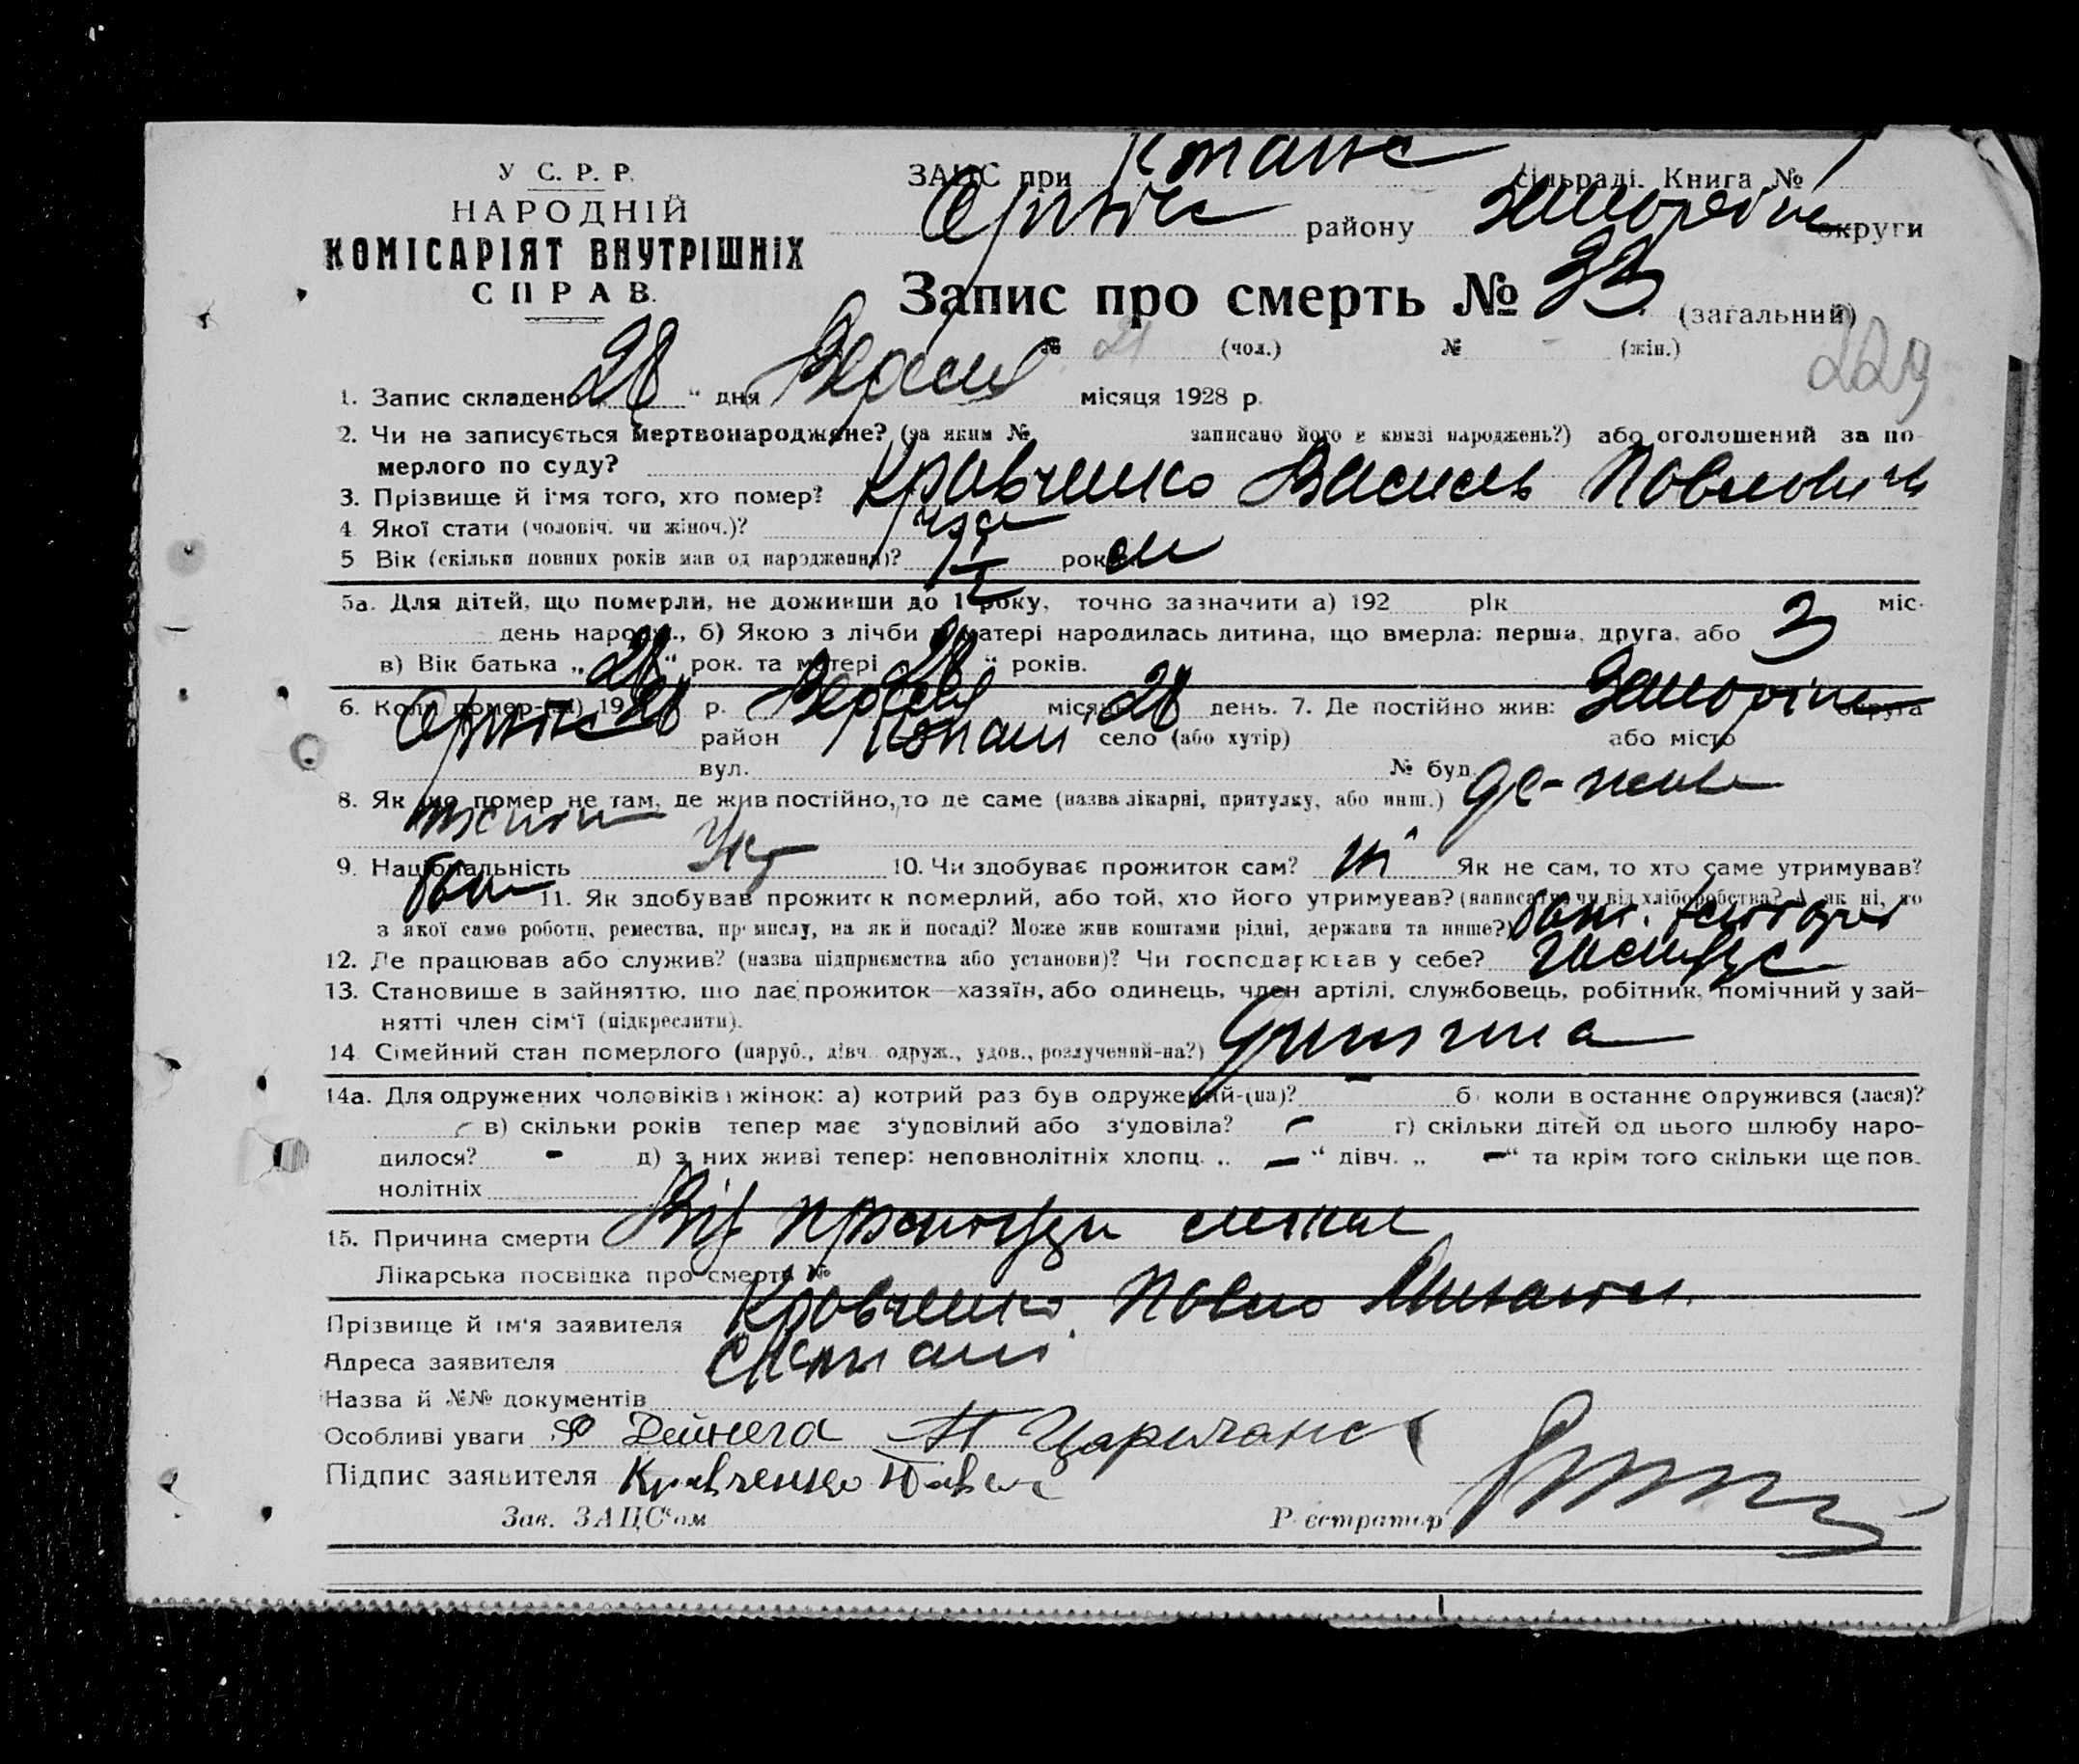 У С. Р. Р.
НАРОДНІЙ
КОМІСАРІЯТ ВНУТРІШНІХ
СПРАВ.
ЗАЦС при Копанс сільраді. Книга №
району округи
Запис про смерть № 33 (загальний)
№ 21 (чол.) № - (жін.)
229
1. Запис складено „28“ дня місяця 1928 р.
2. Чи не записується мертвонароджене? (за яким № записано його в книзі народжень?) або оголошений за по-
мерлого по суду?
3. Прізвище й ім'я того, хто помер? Кравченко Василь Повлович
4 Якої стати (чоловіч. чи жіноч.)?
5 Вік (скільки повних років мав од народження)? рок
5а. Для дітей, що померли, не доживши до 1 року, точно зазначити а) 192 рік міс.
день народж., б) Якою з лічби у матері народилась дитина, що вмерла: перша, друга, або 3
в) Вік батька „28“ рок. та матері „28“ років.
6. Коли помер-(ла) 1928 р. місяця 28 день. 7. Де постійно жив: округа
район Копані село (або хутір) або місто
вул. № буд.
8. Якщо помер не там, де жив постійно, то де саме (назва лікарні, притулку, або инш.) де-жив
постійно
9. Національність Укр 10. Чи здобуває прожиток сам? ні Як не сам, то хто саме утримував?
11. Як здобував прожиток померлий, або той, хто його утримував? (написати чи від хліборобства? А як ні, то
з якої само роботи, ремества, промислу, на якій посаді? Може жив коштами рідні, держави та инше?)
12. Де працював або служив? (назва підприємства або установи)? Чи господарював у себе?
13. Становише в зайняттю, що дає прожиток—хазяїн, або одинець, член артілі, службовець, робітник, помічний у зай-
нятті член сім'ї (підкреслити).
14. Сімейний стан померлого (паруб., дівч. одруж., удов., розлучений-на?) Дитина
14а. Для одружених чоловіків і жінок: а) котрий раз був одружений-(на)? - б) коли в останнє одружився (лася)?
- в) скільки років тепер має з'удовілий або з'удовіла? - г) скільки дітей од цього шлюбу наро-
дилося? - д) з них живі тепер: неповнолітніх хлопц. „ - “ дівч. „ - “ та крім того скільки ще пов.
нолітніх
15. Причина смерти Від простуди
Лікарська посвідка про смерть №
Прізвище й ім'я заявителя Кравченко Повло
Адреса заявителя с Копані
Назва й №№ документів
Особливі уваги Дейнега Н Царичанс
Підпис заявителя Кравченко Павел
Зав. ЗАЦС'ом Реєстратор